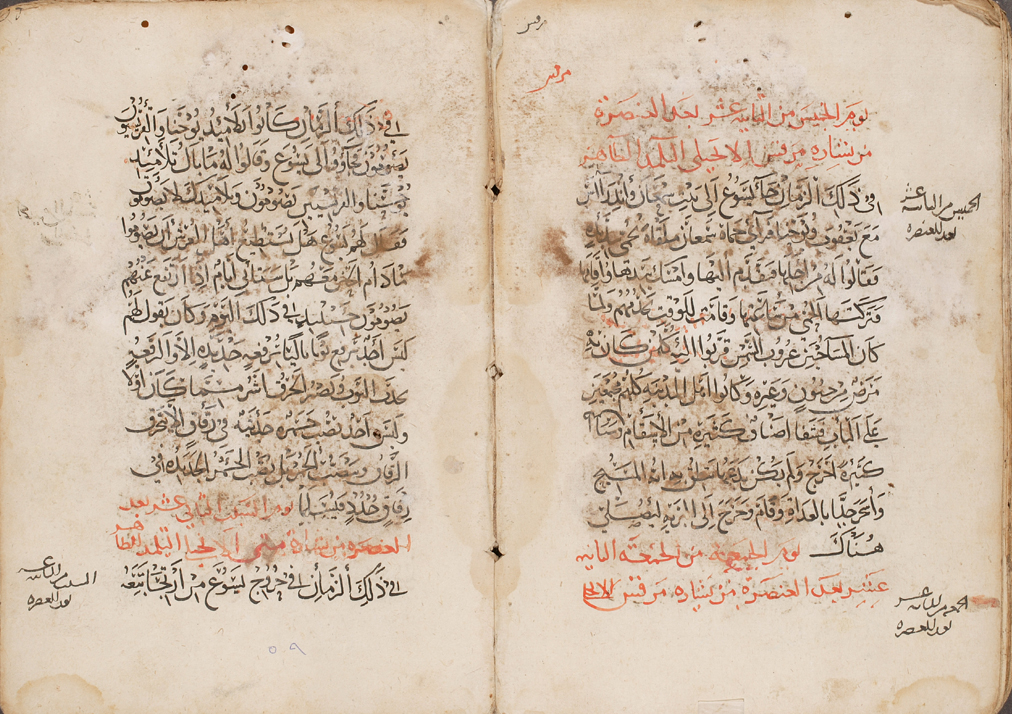 مرقس
مرقس
يوم الخميس من الثانيه عشر بعد العنصرة
من بشاره مرقس الانجيلي التلميذ الطاهر
في ذلك الزمان جا يسوع الى بيت سمعان واندراس
مع يعقوب ويوحنا حماة سمعان ملقاة بحمى
فقالوا له من اجلها فتقدم اليها وامسك بيدها واقامها
فتركتها الحمى من ساعتها وقامت للوقت تخدمهم ولما
كان المسا حين غروب الشمس قربوا اليه كلمن كان به
مرض وجنون وغيره وكانوا اهل المدينة كلهم مجتمعين
على الباب فشفا اصناف كثيرة من الاسقام وشياطين
كثيرة اخرج ولم يكن يدعها تنطق انه المسيح
واسحر جدا بالغداة وقام وخرج الى البرية ليصلي
هناك يوم الجمعه من الجمعة الثانيه
عشر بعد العنصرة من بشاره مرقس الانجيلي
الخميس من الثانيه عشر
بعد العنصره
الجمعه من الثانيه عشر
بعد العنصره
في ذلك الزمان كانوا تلاميد يوحنا والفريسيون
يصومون فجاؤوا الى يسوع وقالوا له ما بال تلاميد
يوحنا والفريسيين يصومون وتلاميدك لا يصومون
فقال لهم يسوع هل يستطيع اهل العرس ان يصوموا
ما دام الختن معهم بل ستاتي ايام اذا ارتفع عنهم
يصومون حينيد في ذلك اليوم وكان يقول لهم
ليس احد يرقع ثوبا باليا برقعه جديده الا والرقعه
تجدب الثوب فيصير الخرق اشر مما كان اولا
وليس احد يصب خمره جديده في زقاق الا فتخرق
الزقاق وينصب الخمر بل يصب الخمر الجديده في
زقاق جدد يوم السبت الثاني عشر بعد
العنصره من بشاره متى الانجيلي التلميذ الطاهر
في ذلك الزمان في خروج يسوع من اريحا تبعه
السبت من الثانيه عشر
بعد العنصره
٥٩